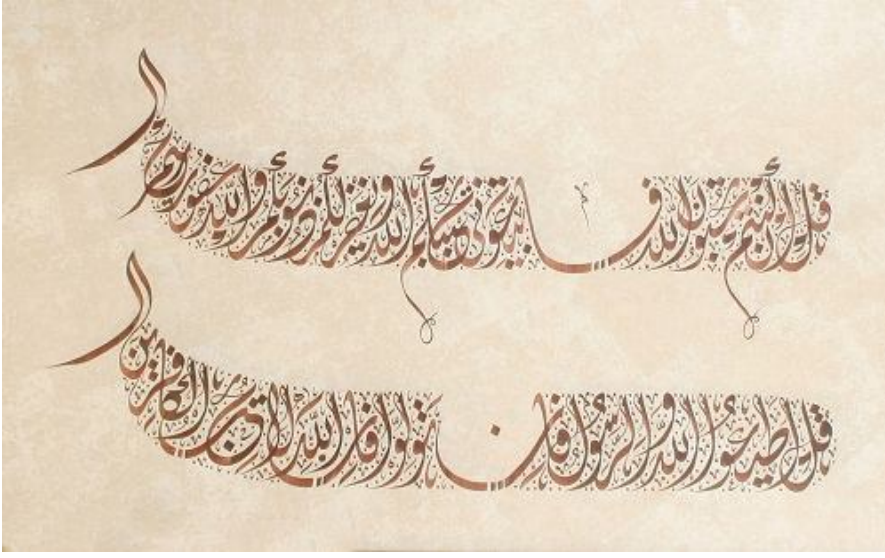 قل إن كنتم تحبون الله فاتبعوني يحببكم الله ويغفر لكم ذنوبكم والله غفور رحيم
قل أطيعوا الله والرسول فإن تولوا فإن الله لا يحب الكافرين